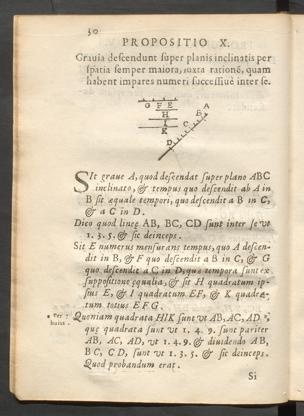 30
PROPOSITIO X.
Grauia descendunt super planis inclinatis per
spatia semper maiora, iuxta rationē, quam
habent impares numeri successiuè inter se.
G F E
H
I
K
A
B
C
D
SIt graue A, quod descendat super plano ABC
inclinato, & tempus quo descendit ab A in
B sit æquale tempori, quo descendit a B in C,
& a C in D.
Dico quod lineę AB, BC, CD sunt inter se vt
1. 3. 5. & sic deinceps.
Sit E numerus mensurans tempus, quo A descen-
dit in B, & F quo descendit a B in C, & G
quo descendit a C in D; quo tempora sunt ex
suppositione ęqualia, & sit H quadratum ip-
sius E, & I quadratum EF, & K quadra-
tum totius EFG.
Per 7
huius.
Quoniam quadrata HIK sunt vt AB, AC, AD
quę quadrata sunt vt 1. 4. 9. sunt pariter
AB, AC, AD, vt 1. 4. 9. & diuidendo AB,
BC, CD, sunt vt 1. 3. 5. & sic deinceps.
Quod probandum erat.
Si